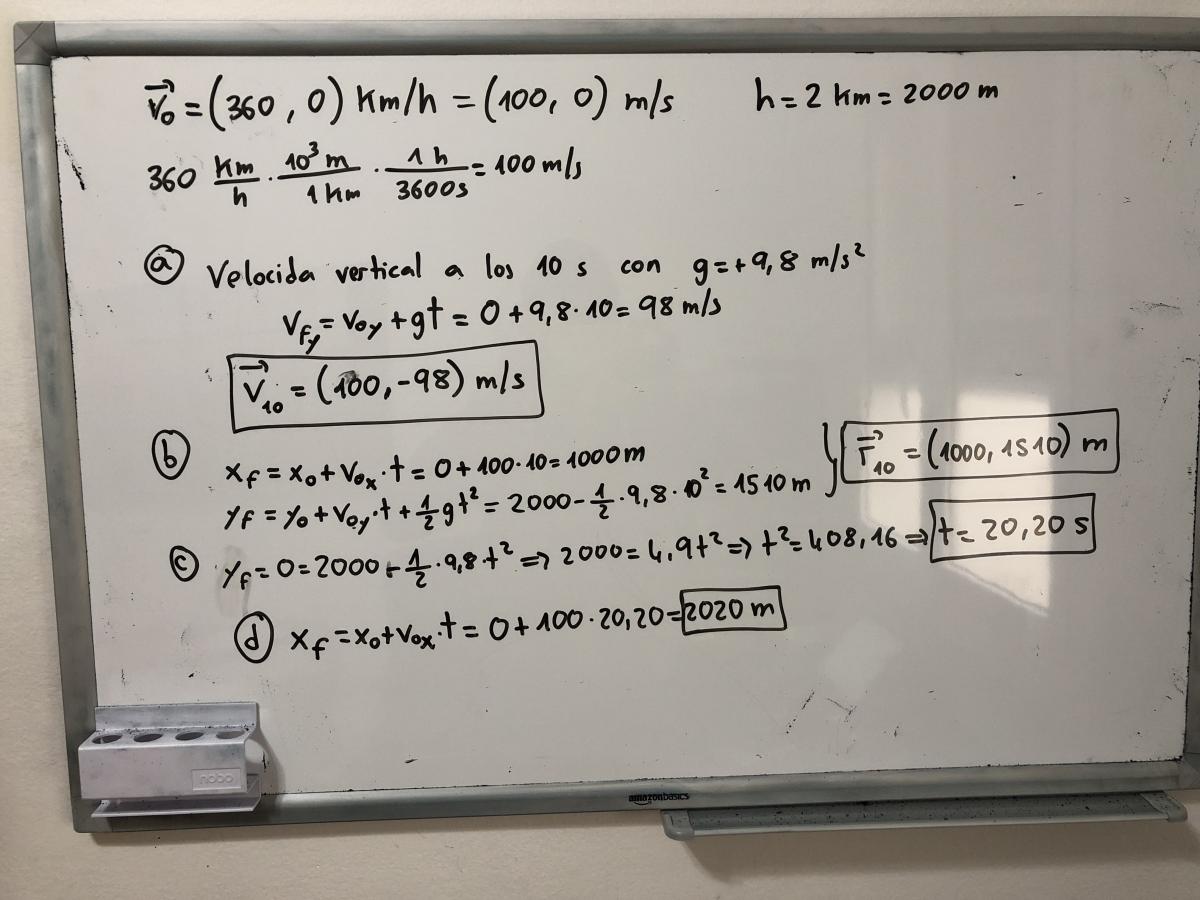 v⃗₀ = (360, 0) Km/h = (100, 0) m/s h = 2 Km = 2000 m
360 Km/h · 10³ m/1 Km · 1 h/3600s = 100 m/s
ⓐ Velocida vertical a los 10 s con g = +9,8 m/s²
V_fy = V_oy + gt = 0 + 9,8 · 10 = 98 m/s
V⃗₁₀ = (100, -98) m/s
ⓑ x_f = x₀ + V_ox · t = 0 + 100 · 10 = 1000 m
y_f = y₀ + V_oy · t + 1/2 gt² = 2000 - 1/2 · 9,8 · 10² = 1510 m } r⃗₁₀ = (1000, 1510) m
ⓒ y_f = 0 = 2000 - 1/2 · 9,8 · t² => 2000 = 4,9t² => t² = 408,16 => t = 20,20 s
ⓓ x_f = x₀ + V_ox · t = 0 + 100 · 20,20 = 2020 m
nobo
amazonbasics